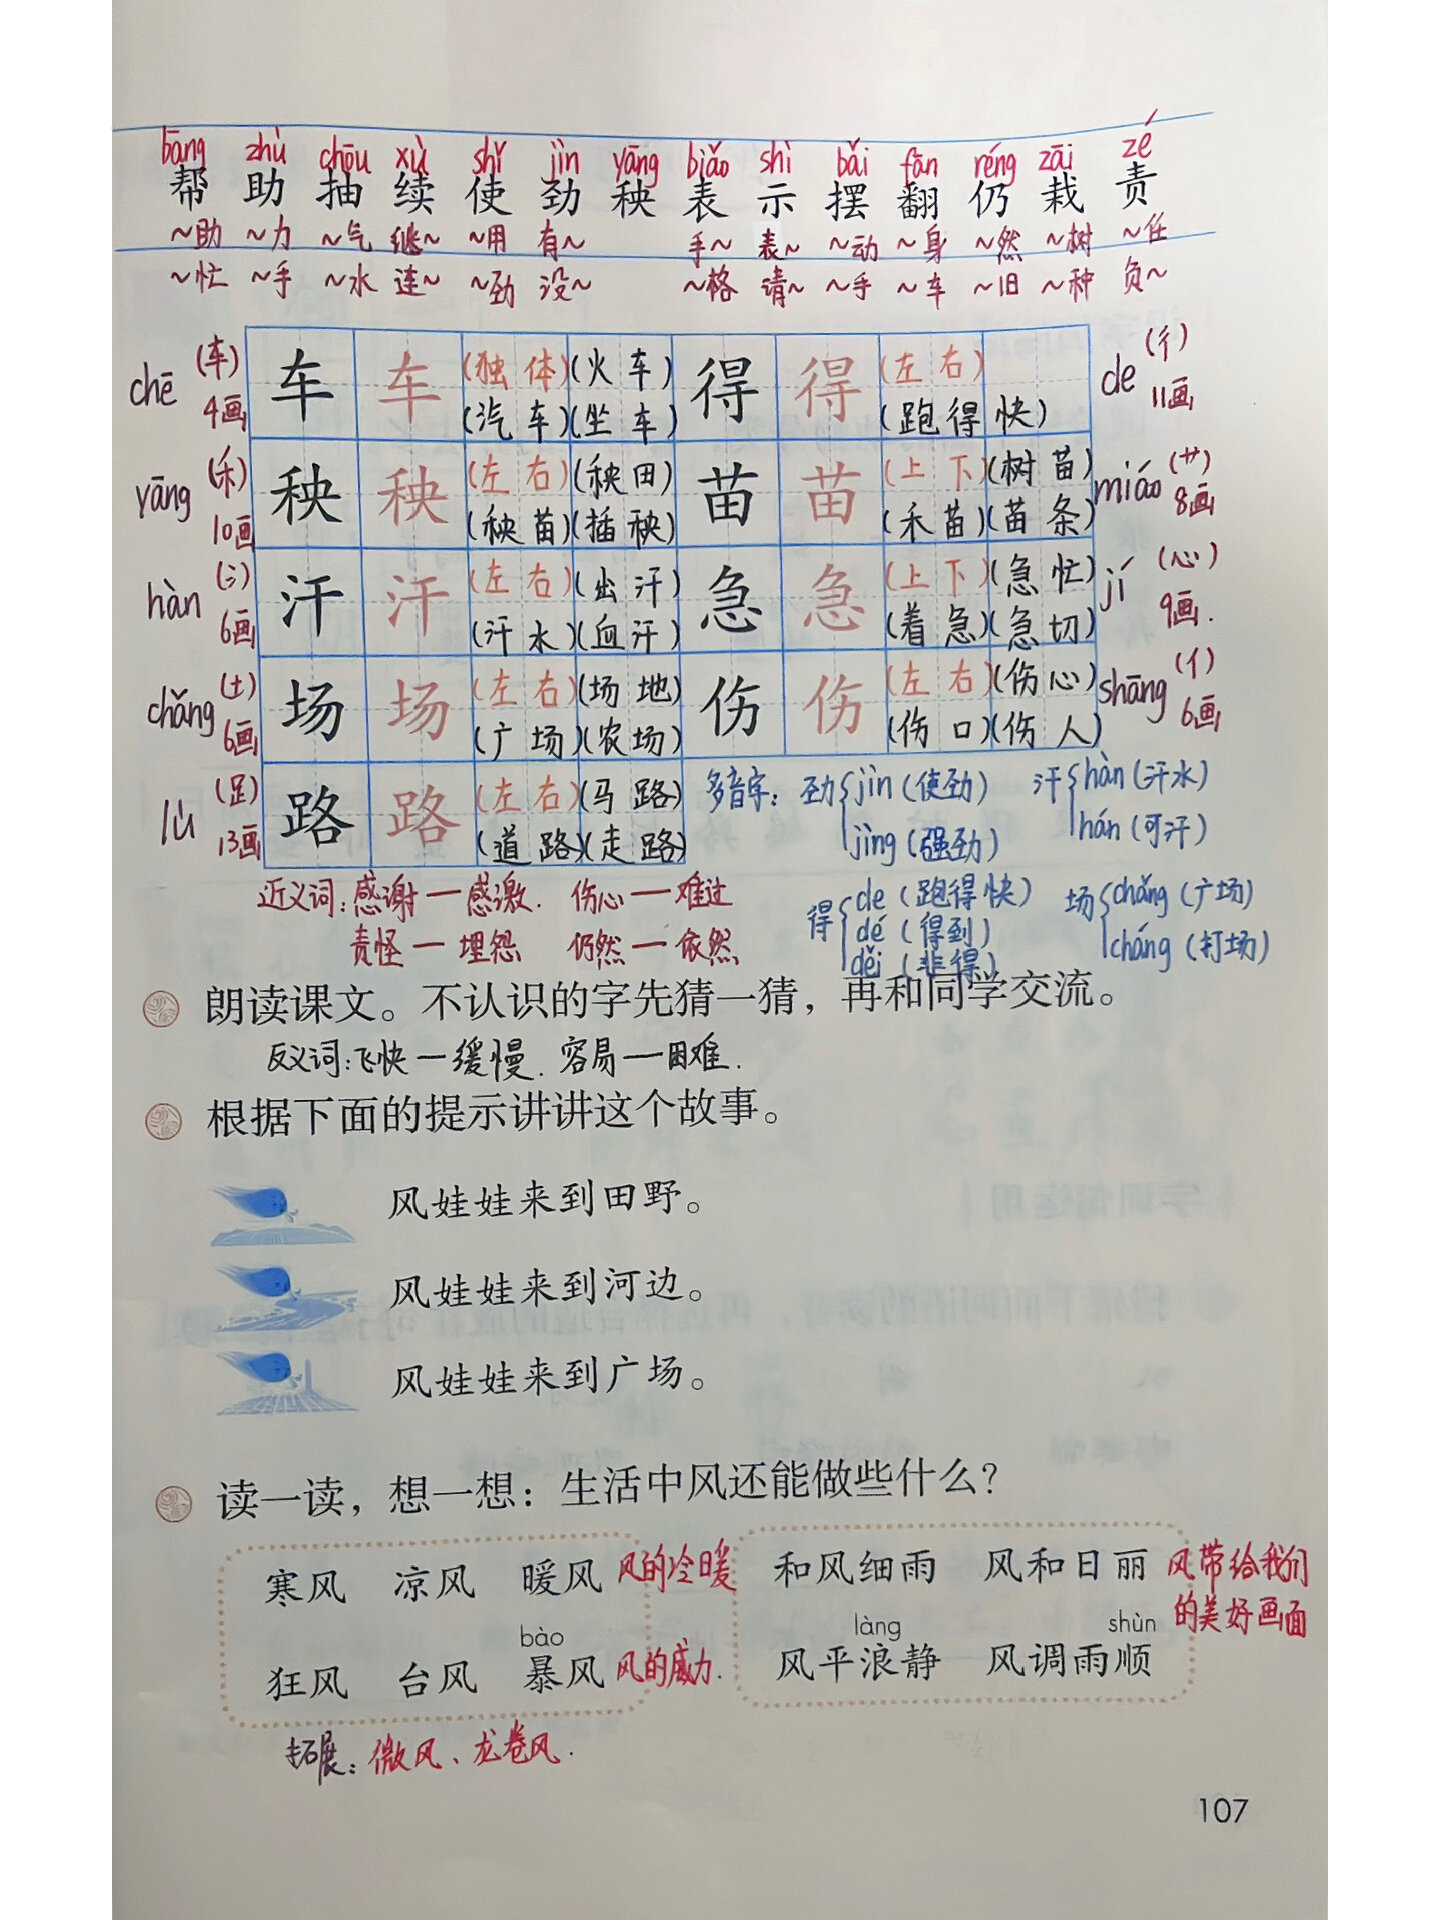 bāng zhù chōu xù shǐ jìn yāng biǎo shì bǎi fān réng zāi zé
帮 助 抽 续 使 劲 秧 表 示 摆 翻 仍 栽 责
~助 ~力 ~气 继~ ~用 有~ 手~ 表~ ~动 ~身 ~然 ~树 ~任
~忙 ~手 ~水 连~ ~劲 没~ ~格 请~ ~手 ~车 ~旧 ~种 负~
chē (车) 4画 车 车 (独体) (火车) 得 得 (左右) de (彳) 11画
(汽车) (坐车) (跑得快)
yāng (禾) 10画 秧 秧 (左右) (秧田) 苗 苗 (上下) (树苗) miáo (艹) 8画
(秧苗) (插秧) (禾苗) (苗条)
hàn (氵) 6画 汗 汗 (左右) (出汗) 急 急 (上下) (急忙) jí (心) 9画.
(汗水) (血汗) (着急) (急切)
chǎng (土) 6画 场 场 (左右) (场地) 伤 伤 (左右) (伤心) shāng (亻) 6画
(广场) (农场) (伤口) (伤人)
lù (𧾷) 13画 路 路 (左右) (马路)
(道路) (走路)
多音字: 劲 jìn (使劲) 汗 hàn (汗水)
jìng (强劲) hán (可汗)
得 de (跑得快) 场 chǎng (广场)
dé (得到) cháng (打场)
děi (非得)
近义词: 感谢—感激. 伤心—难过
责怪—埋怨 仍然—依然
朗读课文。不认识的字先猜一猜，再和同学交流。
反义词: 飞快—缓慢. 容易—困难.
根据下面的提示讲讲这个故事。
风娃娃来到田野。
风娃娃来到河边。
风娃娃来到广场。
读一读，想一想：生活中风还能做些什么？
寒风 凉风 暖风 风的冷暖
bào
狂风 台风 暴风 风的威力.
和风细雨 风和日丽 风带给我们
的美好画面
làng shùn
风平浪静 风调雨顺
拓展: 微风、龙卷风.
107